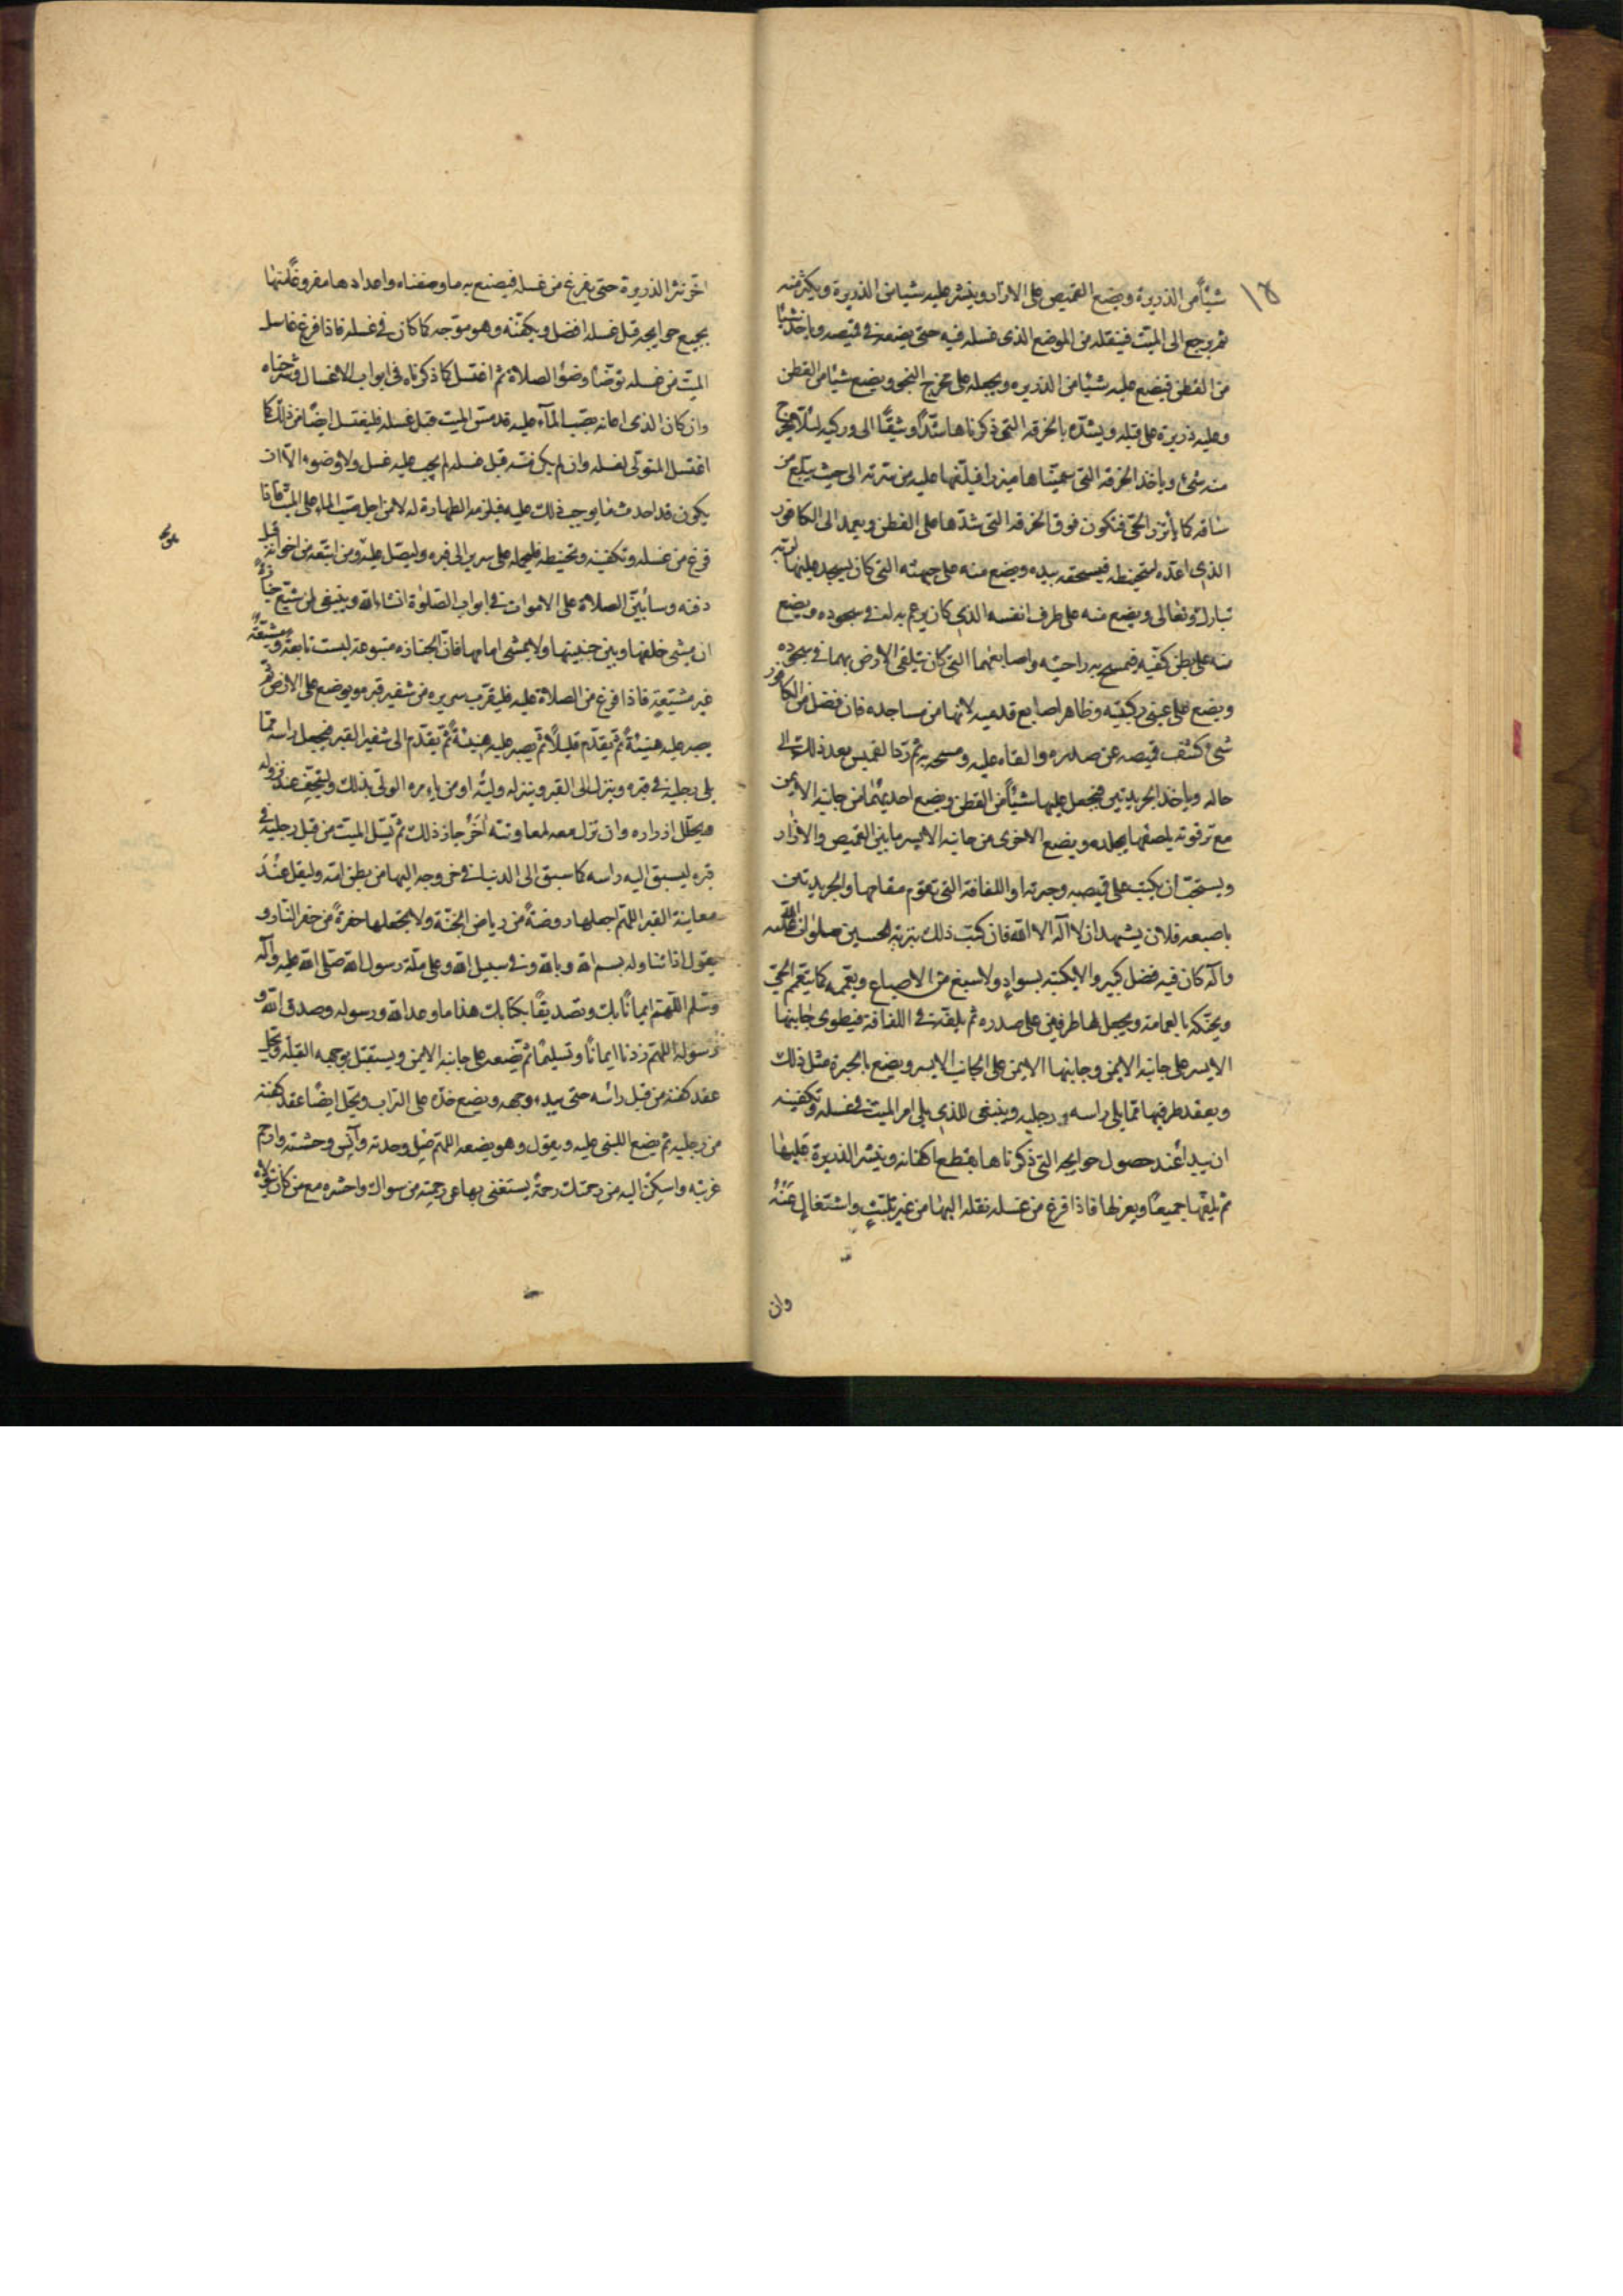 ١٥
شيئاً من الذريرة ويضع القميص على الازار وينثر عليه شيئا من الذريرة ويكثر منه
ثم يرجع الى الميت فينقله من الموضع الذى غسله فيه حتى يضعه فى قميصه وياخذ شيئا
من القطن فيضع عليه شيئا من الذريره ويجعله على مخرج النجو ويضع شيئا من القطن
وعليه ذريرة على قبله ويشده بالخرقه التى ذكرناها شدّاً وثيقاً الى وركيه لئلا يخرج
منه شئ وياخذ الخرقه التى سميناها ميزرا فيلفها عليه من سرته الى حيث يبلغ من
ساقه كما يأتزر الحى فتكون فوق الخرقه التى شدها على القطن ويعمد الى الكافور
الذى اعده لتحنيطه فيسحقه بيده ويضع منه على جبهته التى كان يسجد عليها لربه
تبارك وتعالى ويضع منه على طرف انفسه الذى كان يرغم به له فى سجوده ويضع
منه على بطن كفيه فيمسح به راحتيه واصابعهما التى كان يتلقى الارض بهما فى سجوده
ويضع على عينى ركبتيه وظاهر اصابع قدميه لانها من مساجده فان فضل من الكافور
شئ كشف قميصه عن صدره والقاه عليه ومسحه به ثم رد القميص بعد ذلك الى
حاله وياخذ الجريدتين فيجعل عليهما شيئاً من القطن ويضع احديهما من جانبه الايمن
مع ترقوته يلصقها بجلده ويضع الاخرى من جانبه الايسر ما بين القميص والازار
ويستحب ان يكتب على قميصه وحبرته او اللفافة التى تقوم مقامها والجريدتين
باصبعه فلان يشهد ان لا اله الا الله فان كتب ذلك بتربة الحسين صلوات الله عليه
واله كان فيه فضل كبير ولا يكتبه بسواد ولا صبغ من الاصباغ ويعممه كما يتعمم الحى
ويحنكه بالعمامة ويجعل لها طرفين على صدره ثم يلفه فى اللفافة فيطوى جانبها
الايسر على جانبه الايمن وجانبها الايمن على الجانب الايسر ويضع بالحبرة مثل ذلك
ويعقد طرفيها مما يلى راسه ورجليه وينبغى للذى يلى امر الميت فى غسله وتكفينه
ان يبدأ عند حصول حوايجه التى ذكرناها بقطع اكفانه وينثر الذريرة عليها
ثم يلفها جميعا ويعزلها فاذا فرغ من غسله نقله اليها من غير تلبث واشتغال عنه
وان
اخر نثر الذريرة حتى يفرغ من غسله فيصنع به ما وصفناه واعدادها مفروغا منها
بجميع حوايجه قبل غسله افضل ويكفنه وهو موجه كما كان فى غسله فاذا فرغ غاسل
الميت من غسله توضأ وضوء الصلاة ثم اغتسل كما ذكرناه فى ابواب الاغسال وشرحناه
وان كان الذى اعانه بصب المآء عليه قد مس الميت قبل غسله فليغتسل ايضا من ذلك كما
اغتسل المتولى لغسله وان لم يكن مسه قبل غسله لم يجب عليه غسل ولا وضوء الا ان
يكون قد احدث ما يوجب ذلك عليه فيلزمه الطهارة له لا من اجل صب الماء على الميت فاذا
فرغ من غسله وتكفينه وتحنيطه فليحمله على سريره الى قبره وليصل عليه ومن اتبعه من اخوانه قبل
دفنه وسابين الصلاة على الاموات فى ابواب الصلوة انشاء الله وينبغى لمن شيع جنازة
ان يمشى خلفها وبين جنبيها ولا يمشى امامها فان الجنازه متبوعة ليست تابعة ومشيعة
غير مشيعة فاذا فرغ من الصلاة عليه فليقرب سريره من شفير قبره ويوضع على الارض ثم
يصبر عليه هنيئة ثم يقدم قليلا ثم يصبر عليه هنيئة ثم يقدم الى شفير القبر فيجعل راسه مما
يلى رجليه فى قبره وينزل الى القبر وينزله وليه او من يامره الولى بذلك وليتحف عند نزوله
ويحلل ازراره وان نزل معه لمعاونته آخر جاز ذلك ثم يسل الميت من قبل رجليه فى
قبره ليسبق اليه راسه كما سبق الى الدنيا فى خروجه اليها من بطن امه وليقل عند
معاينة القبر اللهم اجعلها روضةً من رياض الجنة ولا تجعلها حفرةً من حفر النار و
يقول اذا تناوله بسم الله وبالله وفى سبيل الله وعلى ملة رسول الله صلى الله عليه واله
وسلم اللهم ايمانا بك وتصديقا بكتابك هذا ما وعد الله ورسوله وصدق الله و
رسوله اللهم زدنا ايمانا وتسليما ثم يضعه على جانبه الايمن ويستقبل بوجهه القبلة ويحل
عقد كفنه من قبل رأسه حتى يبدء وجهه ويضع خده على التراب ويحل ايضا عقد كفنه
من رجليه ثم يضع اللبن عليه ويقول وهو يضعه اللهم صل وحدته وآنس وحشته وارحم
غربته واسكن اليه من رحمتك رحمةً يستغنى بها عن رحمة من سواك واحشره مع من كان يتولاه